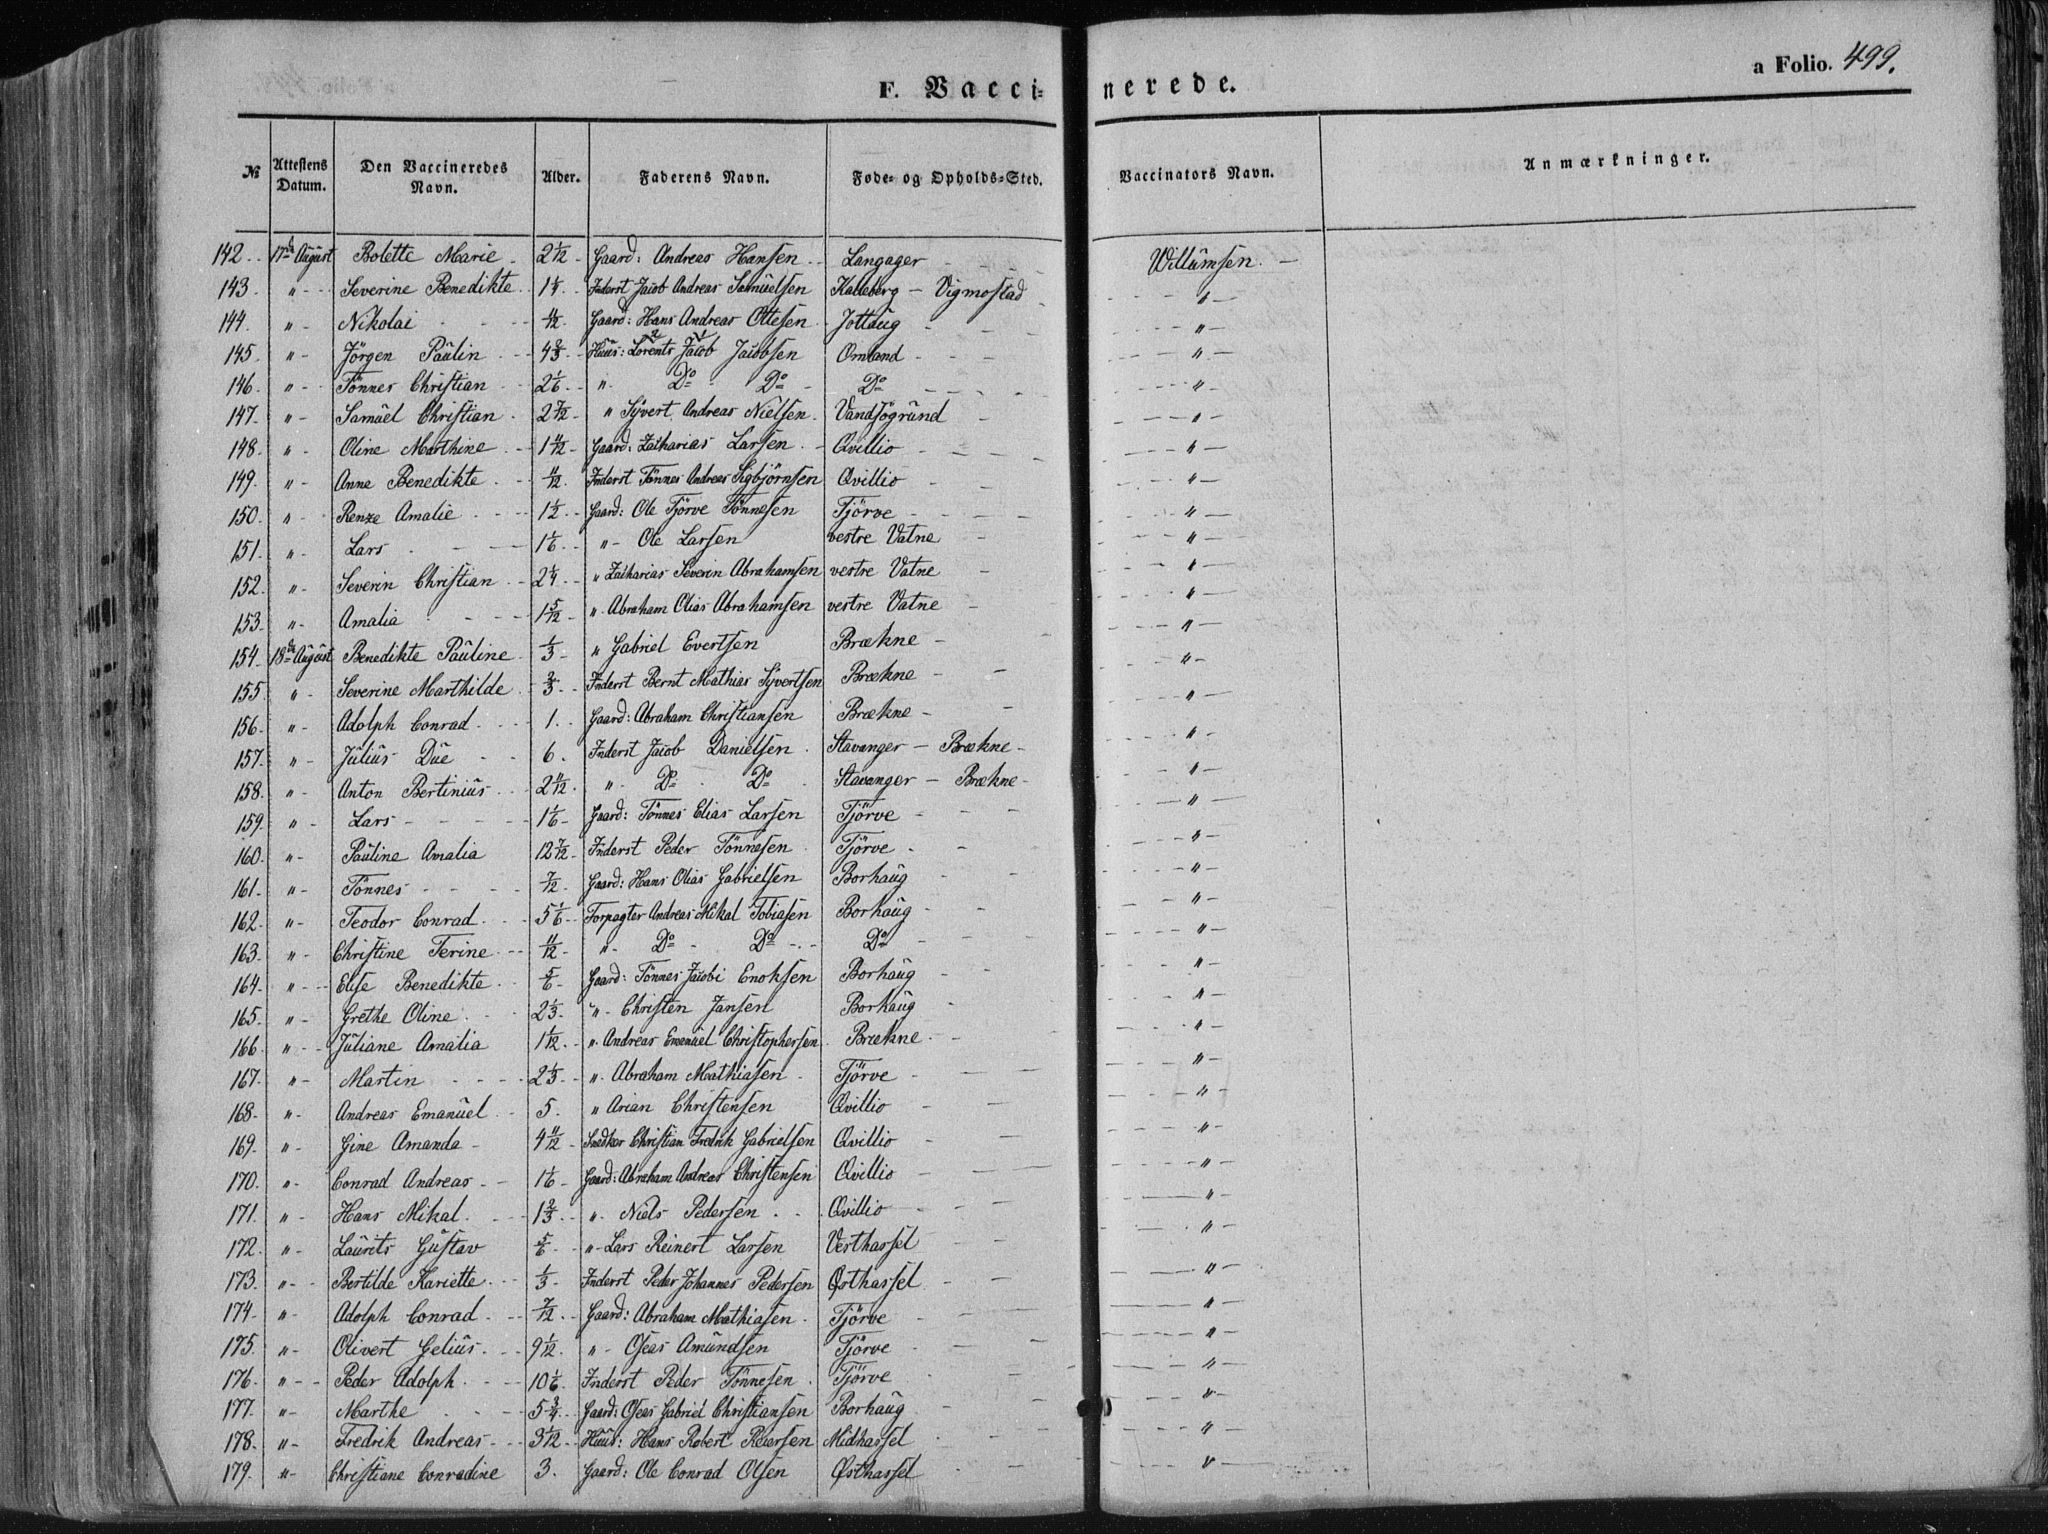 a Folio. 499.
F. Vaccinerede.
№ Attestens Datum. Den Vaccineredes Navn. Alder. Faderens Navn. Føde- og Opholds-Sted. Vaccinators Navn. Anmærkninger.
142. 17de August Bolette Marie 2 1/12 Gaard: Andreas Hansen Langager Willumsen.
143. " Severine Benedikte 1 1/4 Inderst Jacob Andreas Samuelsen Kalleberg - Vigmostad "
144. " Nikolai Gaard: Hans Andreas Ottesen Jottaug "
145. " Jörgen Paulin 4 2/3 Huus: Lorents Jacob Jacobsen Omland "
146. " Tönnes Christian 2 1/6 " Do Do Do "
147. " Samuel Christian 2 7/12 " Syvert Andreas Nielsen Vandsögrund "
148. " Oline Marthine 1 11/12 Gaard: Zacharias Larsen Qvillio "
149. " Anne Benedikte 11/12 Inderst Tönnes Andreas Sigbjörnsen Qvillio "
150. " Renze Amalie 1 1/2 Gaard: Ole Tjörve Tönnesen Tjörve "
151. " Lars 1 1/6 " Ole Larsen vestre Vatne "
152. " Severin Christian 2 1/4 " Zacharias Severin Abrahamsen vestre Vatne "
153. " Amalia 1 5/12 " Abraham Olias Abrahamsen vestre Vatne "
154. 18de August Benedikte Pauline 1/3 " Gabriel Evertsen Brækne "
155. " Severine Marthilde 2/3 Inderst Bernt Mathias Syvertsen Brækne "
156. " Adolph Conrad 1. Gaard: Abraham Christiansen Brækne "
157. " Julius Due 6. Inderst Jacob Danielsen Stavanger - Brækne "
158. " Anton Bertinius 2 11/12 " Do Do Stavanger - Brækne "
159. " Lars 1 1/6 Gaard: Tönnes Elias Larsen Tjörve "
160. " Pauline Amalia 12 7/12 Inderst Peder Tönnesen Tjörve "
161. " Tönnes 7/12 Gaard: Hans Olias Gabrielsen Borhaug "
162. " Teodor Conrad 5 1/6 Forpagter Andreas Mikal Tobiasen Borhaug "
163. " Christine Terine 11/12 " Do Do Do "
164. " Elise Benedikte 5/6 Gaard: Tönnes Jacobi Enoksen Borhaug "
165. " Grethe Oline 2 1/3 " Christen Jansen Borhaug "
166. " Juliane Amalia 1 1/12 " Andreas Emanuel Christophersen Brækne "
167. " Martin 2 1/3 " Abraham Mathiasen Tjörve "
168. " Andreas Emanuel 5. " Arian Christensen Qvillio "
169. " Gine Amanda 4 11/12 Snedker Christian Fredrik Gabrielsen Qvillio "
170. " Conrad Andreas 1 1/6 Gaard: Abraham Andreas Christensen Qvillio "
171. " Hans Mikal 1 2/3 " Niels Pedersen Qvillio "
172. " Laurits Gustav 5/6 " Lars Reinert Larsen Vesthassel "
173. " Bertilde Kariette 1/3 Inderst Peder Johannes Pedersen Østhassel "
174. " Adolph Conrad 7/12 Gaard: Abraham Mathiasen Tjörve "
175. " Olivert Gelius 9 1/12 " Oseas Amundsen Tjörve "
176. " Peder Adolph 10 1/6 Inderst Peder Tönnesen Tjörve "
177. " Marthe 5 3/4 Gaard: Oseas Gabriel Christiansen Borhaug "
178. " Fredrik Andreas 3 1/12 Huus: Hans Robert Reiersen Midhassel "
179. " Christiane Conradine 3. Gaard: Ole Conrad Olsen Østhassel "